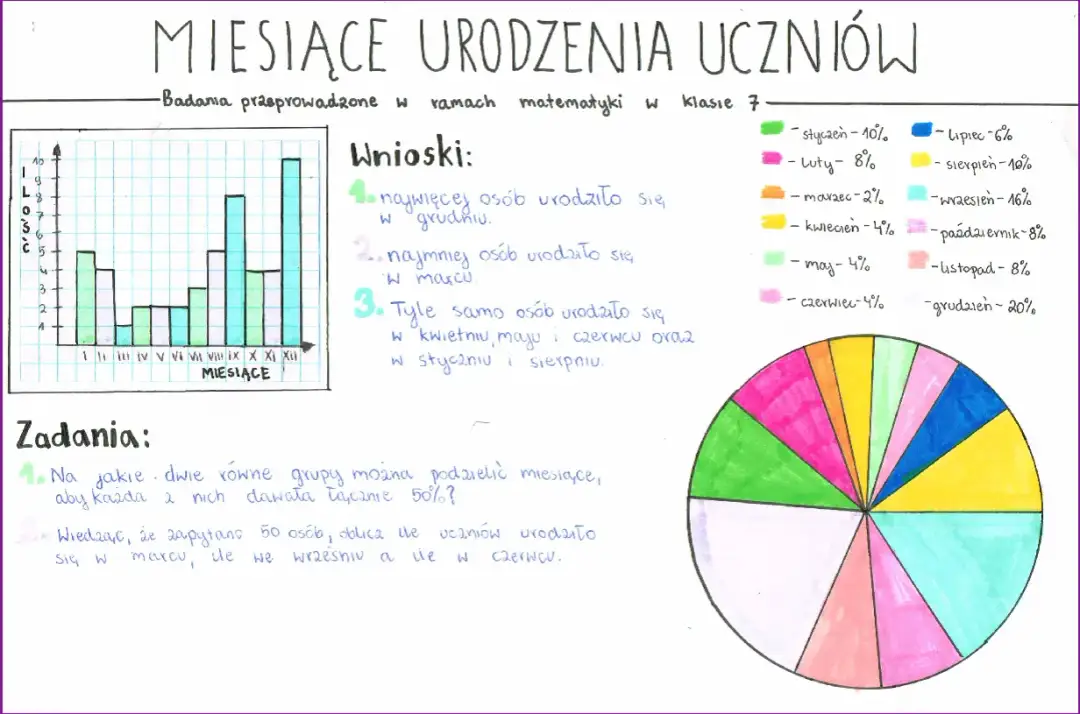 MIESIĄCE URODZENIA UCZNIÓW
Badania przeprowadzone w ramach matematyki w klasie 7
ILOŚĆ
10
9
8
7
6
5
4
3
2
1
I II III IV V VI VII VIII IX X XI XII
MIESIĄCE
Wnioski:
1. najwięcej osób urodziło się
w grudniu.
2. najmniej osób urodziło się
w marcu
3. Tyle samo osób urodziło się
w kwietniu, maju i czerwcu oraz
w styczniu i sierpniu.
- styczeń - 10%
- luty - 8%
- marzec - 2%
- kwiecień - 4%
- maj - 4%
- czerwiec - 4%
- lipiec - 6%
- sierpień - 10%
- wrzesień - 16%
- październik - 8%
- listopad - 8%
- grudzień - 20%
Zadania:
1. Na jakie dwie równe grupy można podzielić miesiące,
aby każda z nich dawała łącznie 50%?
2. Wiedząc, że zapytano 50 osób, oblicz ile uczniów urodziło
się w marcu, ile we wrześniu a ile w czerwcu.